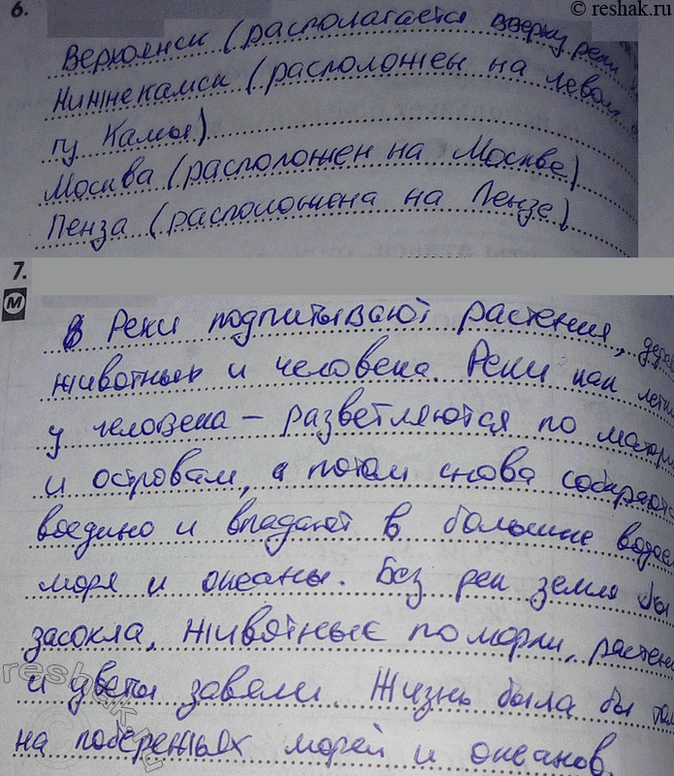 © reshak.ru
6.
Верхоянск (располагается вверху реки
Нижнекамск (расположен на левом
гу Камы)
Москва (расположен на Москве)
Пенза (расположена на Пензе)
7.
М
В Реки подпитывают растения, дерев
животных и человека. Реки как
у человека – разветляются по матери
и островам, а потом снова собираются
воедино и впадают в большие водоем
моря и океаны. Без рек земля бы
засохла, животные поморли, растени
и цветы завяли. Жизнь была бы тол
на побережьях морей и океанов.
reshak.ru